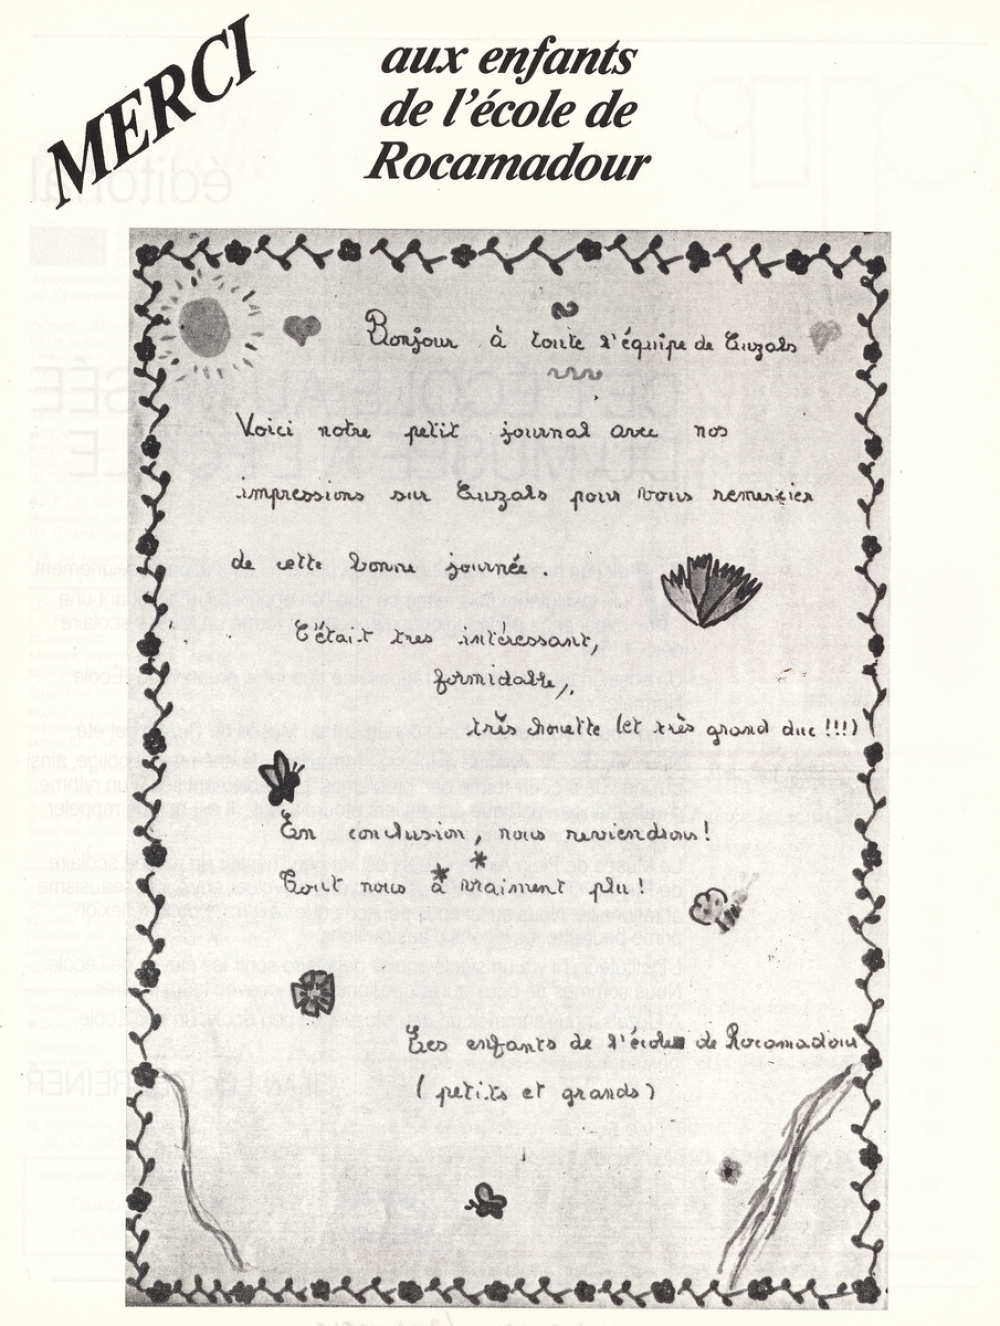 MERCI
aux enfants
de l'école de
Rocamadour
Bonjour à toute l'équipe de Cuzals
Voici notre petit journal avec nos
impressions sur Cuzals pour vous remercier
de cette bonne journée.
C'était tres intéressant,
formidable,
très chouette (et très grand duc !!!)
En conclusion, nous reviendrons!
Tout nous a vraiment plu!
Les enfants de l'école de Rocamadour
(petits et grands)